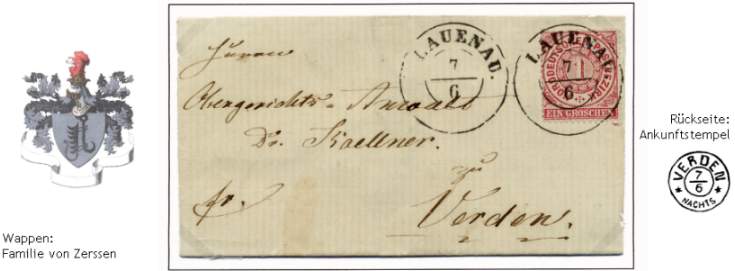 Wappen:
Familie von Zerssen
LAUENAU.
7
6
LAUENAU.
7
6
NORDDEUTSCHER POSTBEZIRK
1
EIN GROSCHEN
Herrn
Obergerichts-Anwalt
Dr. Koellner.
zu
Verden.
fr.
Rückseite:
Ankunftstempel
VERDEN
7
6
NACHTS